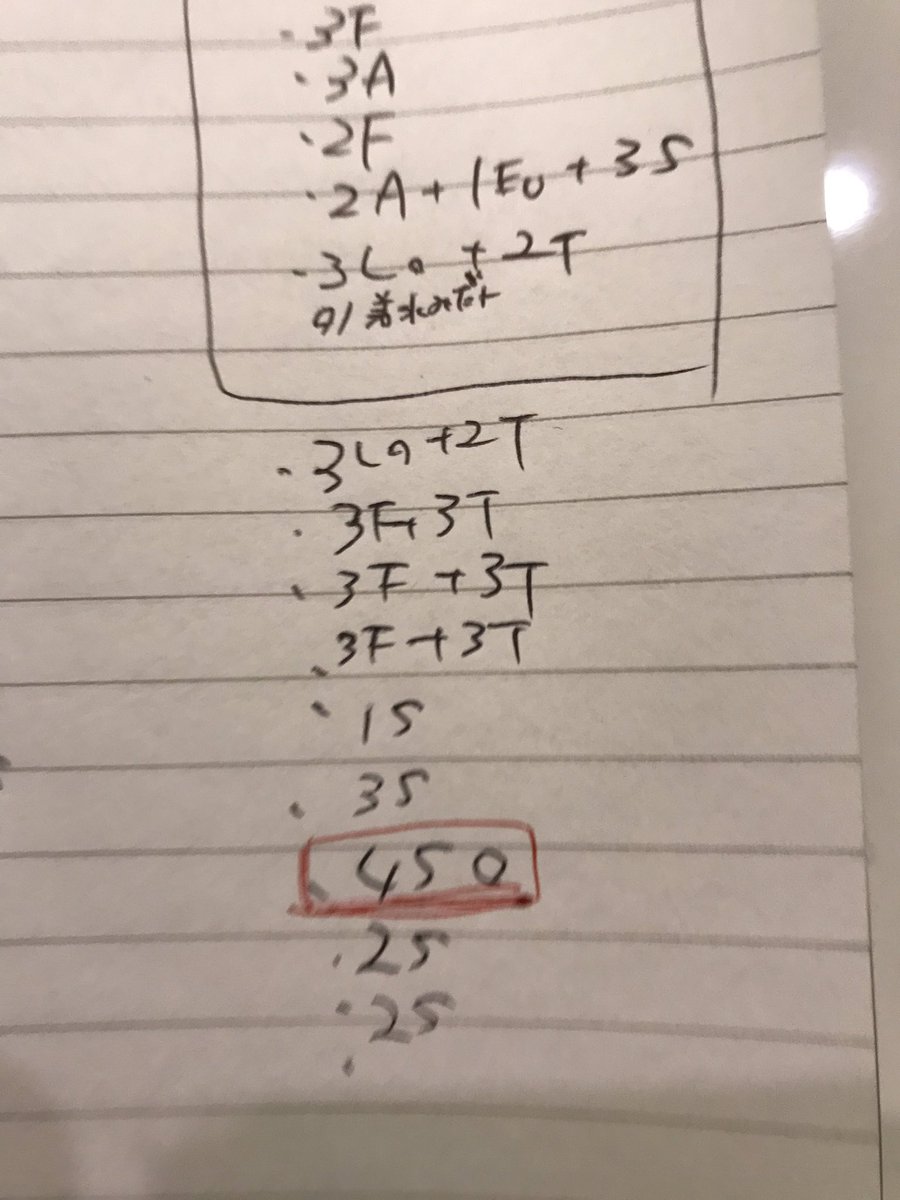 ・3F
・3A
・2F
・2A+1Eu+3S
・3Lo+2T
・3Lo+2T
・3F+3T
・3F+3T
・3F+3T
・1S
・3S
・450
・2S
・2S
・